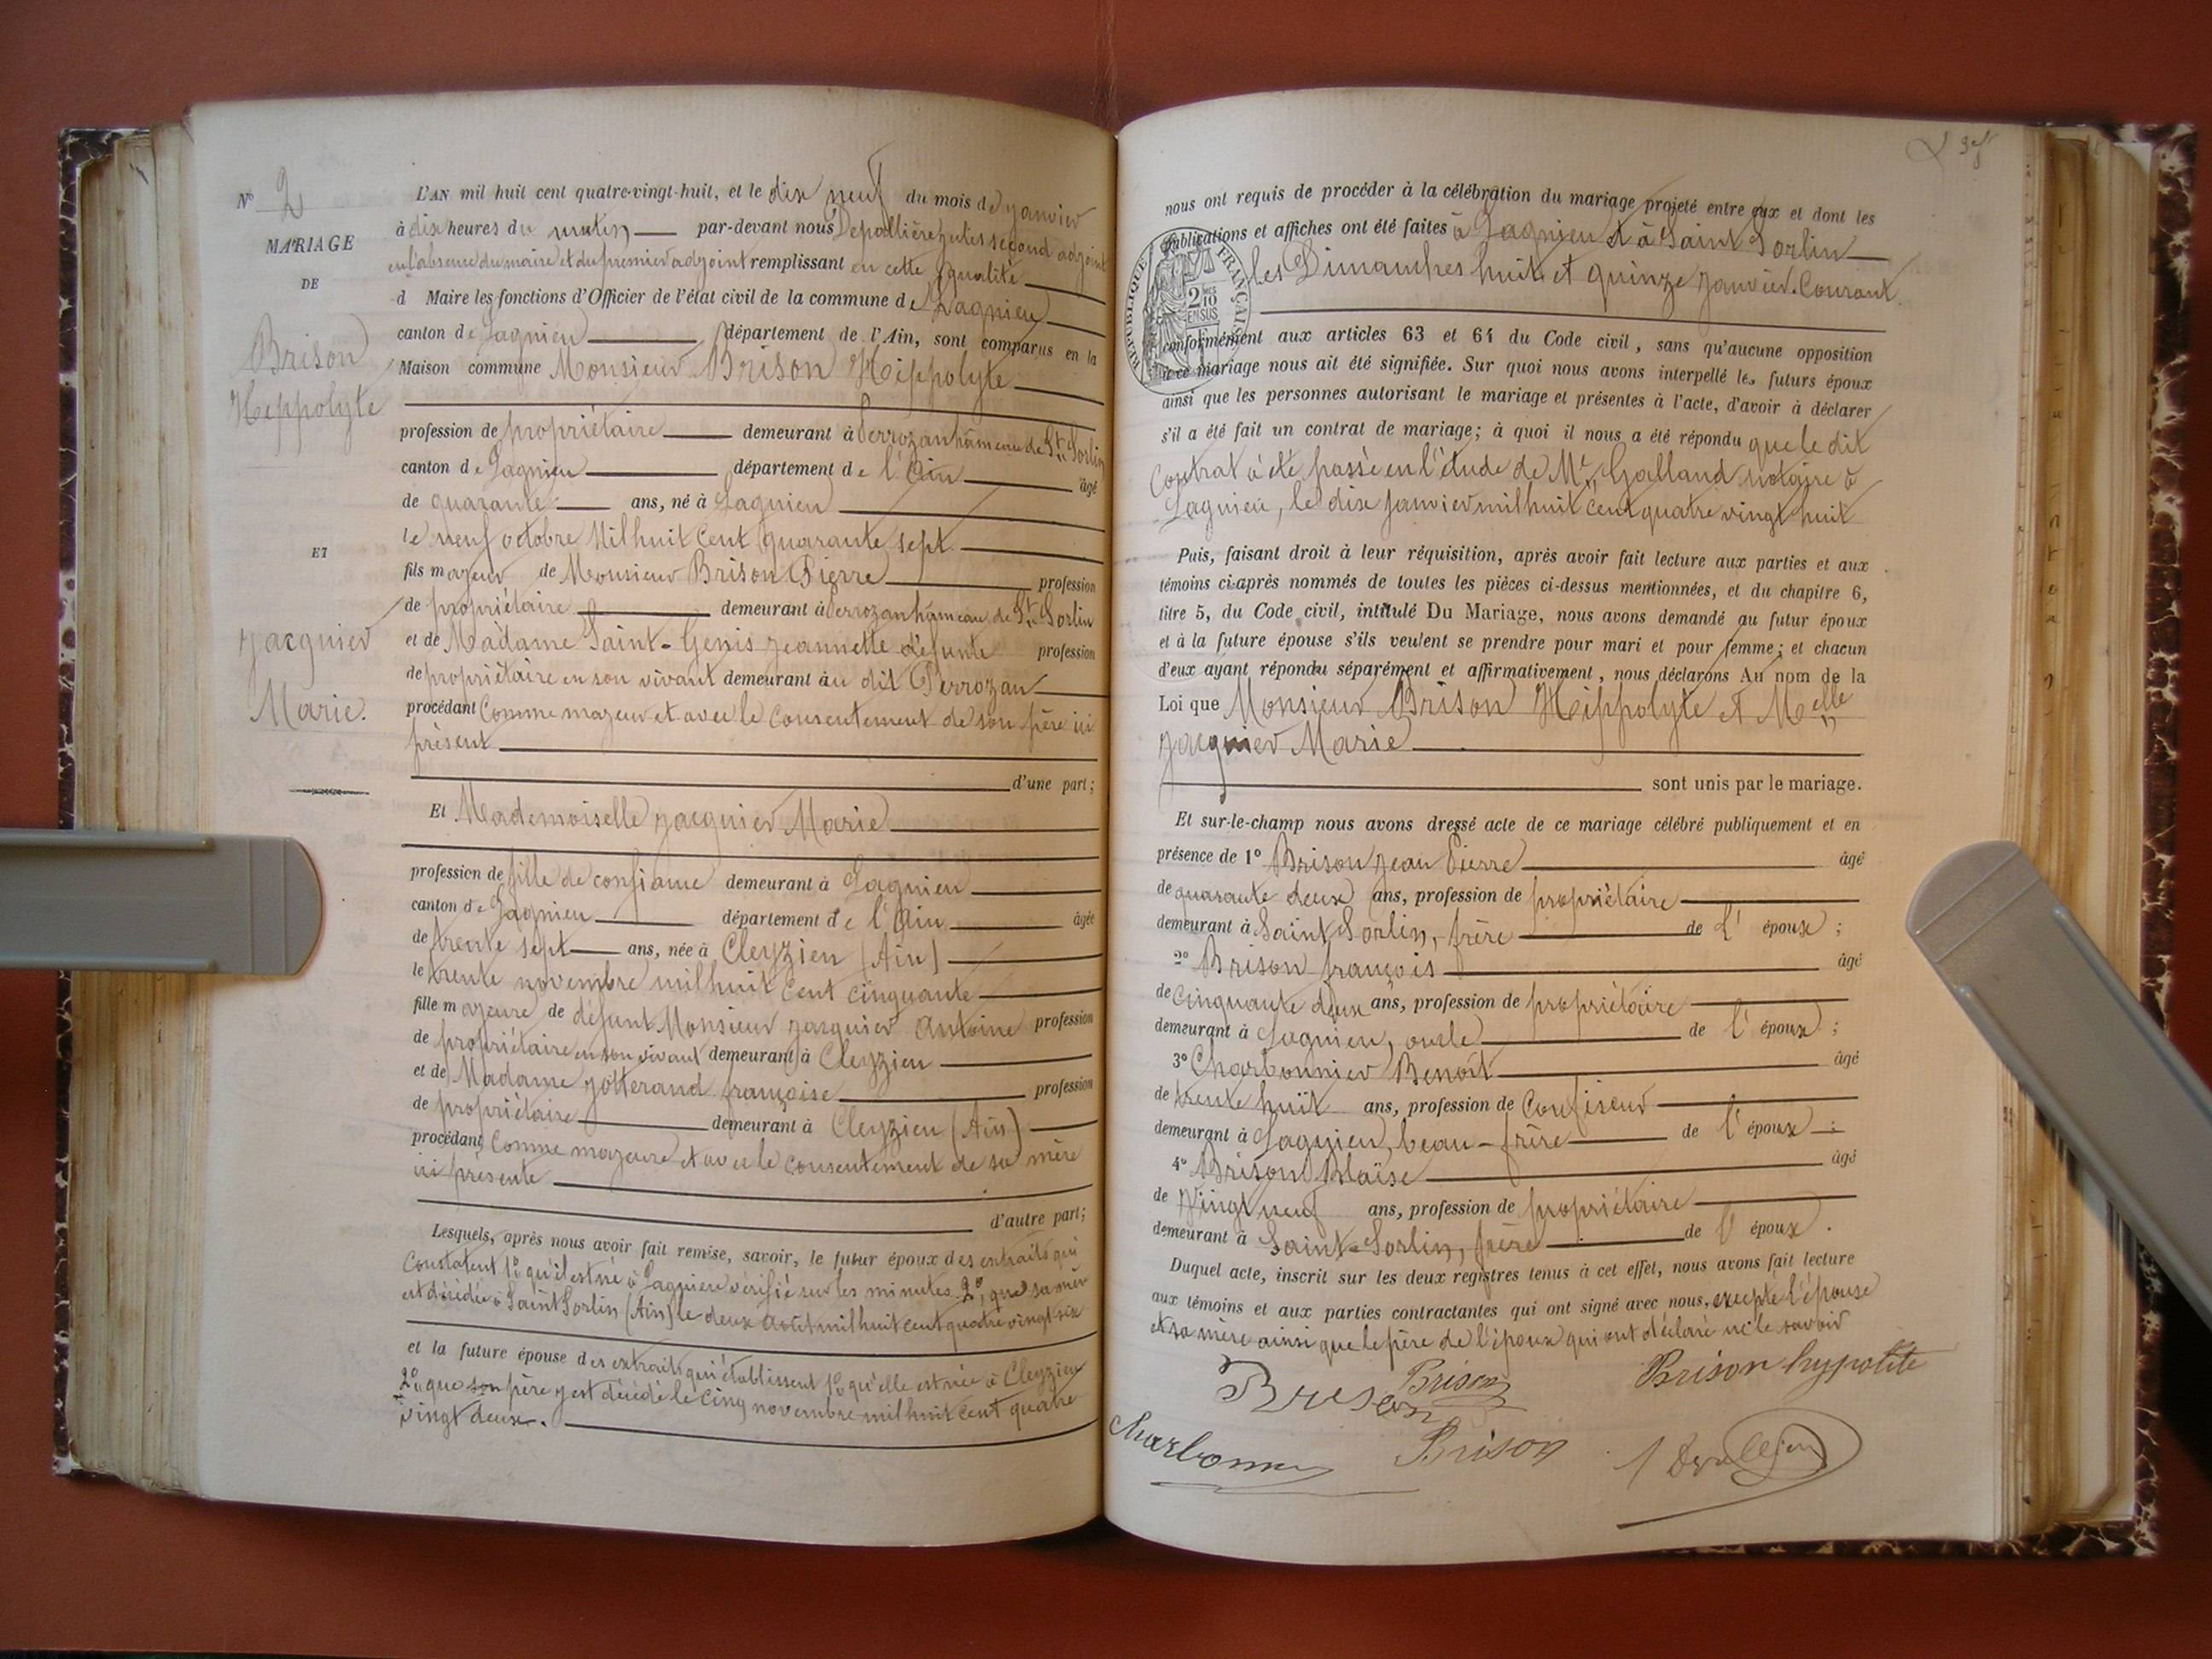 N° 2
MARIAGE
DE
Brison
Hippolyte
ET
Jacquier
Marie.
L'AN mil huit cent quatre-vingt-huit, et le dix neuf du mois de janvier
à dix heures du matin par-devant nous Depallière Jules second adjoint
en l'absence du maire et du premier adjoint remplissant en cette qualité
d Maire les fonctions d'Officier de l'état civil de la commune de Lagnieu
canton de Lagnieu département de l'Ain, sont comparus en la
Maison commune Monsieur Brison Hippolyte
profession de propriétaire demeurant à Perrozan hameau de St Sorlin
canton de Lagnieu département de l'Ain âgé
de quarante ans, né à Lagnieu
le neuf octobre Mil huit cent quarante sept
fils majeur de Monsieur Brison Pierre profession
de propriétaire demeurant à Perrozan hameau de St Sorlin
et de Madame Saint-Genis Jeannette défunte profession
de propriétaire en son vivant demeurant au dit Perrozan
procédant Comme majeur et avec le consentement de son père ici
présent
d'une part;
Et Mademoiselle Jacquier Marie
profession de fille de confiance demeurant à Lagnieu
canton de Lagnieu département de l'Ain âgée
de trente sept ans, née à Cleyzieu (Ain)
le trente novembre mil huit cent cinquante
fille majeure de défunt Monsieur Jacquier Antoine profession
de propriétaire en son vivant demeurant à Cleyzieu
et de Madame Jotterand françoise profession
de propriétaire demeurant à Cleyzieu (Ain)
procédant Comme majeure et avec le consentement de sa mère
ici présente
d'autre part;
Lesquels, après nous avoir fait remise, savoir, le futur époux des extraits qui
Constatent 1° qu'il est né à Lagnieu vérifié sur les minutes 2°, que sa mère
est décédée à Saint Sorlin (Ain) le deux Août mil huit cent quatre vingt six
et la future épouse des extraits qui établissent 1° qu'elle est née à Cleyzieu
2° que son père y est décédé le cinq novembre mil huit cent quatre
vingt deux.
nous ont requis de procéder à la célébration du mariage projeté entre eux et dont les
publications et affiches ont été faites à Lagnieu et à Saint Sorlin
les Dimanches huit et quinze janvier Courant
RÉPUBLIQUE FRANÇAISE
2 MES
10
EN SUS
conformément aux articles 63 et 64 du Code civil, sans qu'aucune opposition
à ce mariage nous ait été signifiée. Sur quoi nous avons interpellé les futurs époux
ainsi que les personnes autorisant le mariage et présentes à l'acte, d'avoir à déclarer
s'il a été fait un contrat de mariage; à quoi il nous a été répondu que le dit
Contrat a été passé en l'étude de Me Galland notaire à
Lagnieu, le dix janvier mil huit cent quatre vingt huit
Puis, faisant droit à leur réquisition, après avoir fait lecture aux parties et aux
témoins ci-après nommés de toutes les pièces ci-dessus mentionnées, et du chapitre 6,
titre 5, du Code civil, intitulé Du Mariage, nous avons demandé au futur époux
et à la future épouse s'ils veulent se prendre pour mari et pour femme; et chacun
d'eux ayant répondu séparément et affirmativement, nous déclarons Au nom de la
Loi que Monsieur Brison Hippolyte et Melle
Jacquier Marie
sont unis par le mariage.
Et sur-le-champ nous avons dressé acte de ce mariage célébré publiquement et en
présence de 1° Brison Jean Pierre âgé
de quarante deux ans, profession de propriétaire
demeurant à Saint Sorlin, frère de l'époux;
2° Brison françois âgé
de cinquante deux ans, profession de propriétaire
demeurant à Lagnieu, oncle de l'époux;
3° Charbonnier Benoît âgé
de trente huit ans, profession de Confiseur
demeurant à Lagnieu, beau-frère de l'époux;
4° Brison Blaise âgé
de Vingt neuf ans, profession de propriétaire
demeurant à Saint-Sorlin, frère de l'époux.
Duquel acte, inscrit sur les deux registres tenus à cet effet, nous avons fait lecture
aux témoins et aux parties contractantes qui ont signé avec nous, excepté l'épouse
et sa mère ainsi que le père de l'époux qui ont déclaré ne le savoir
Brison Brison Brison hyppolite
Charbonnier Brison